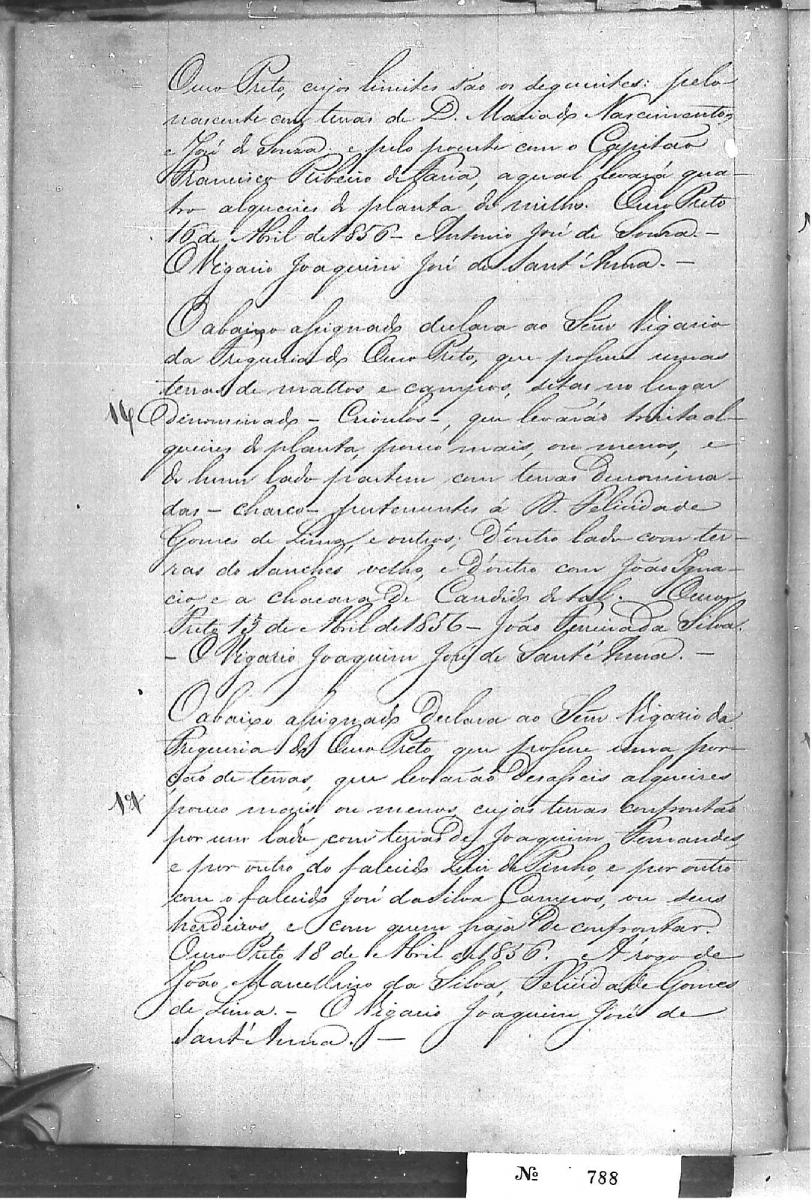 Ouro Preto, cujos limites são os seguintes: pelo
nascente com terras de D. Maria do Nascimento,
e José de Souza, e pelo poente com o Capitão
Francisco Ribeiro de Faria, a qual levará qua-
tro alqueires de planta de milho. Ouro Preto
16 de Abril de 1856 - Antonio José de Souza. -
O Vigario Joaquim José de Sant'Anna. -
O abaixo assignado declara ao Senr Vigario
da Freguesia do Ouro Preto, que possue umas
terras de mattos e campos, sitas no lugar
16 denominado - Crioulos -, que levarão trinta al-
queires de planta, pouco mais, ou menos, e
de hum lado partem com terras denomina-
das - charco - pertenentes á D. Felicidade
Gomes de Lima, e outros; d'outro lado com ter-
ras do Sanches velho, e d'outro com João Igna-
cio, e a chacara de Candido de tal. Ouro
Preto 15 de Abril de 1856 - João Ferreira da Silva.
- O Vigario Joaquim José de Sant'Anna. -
O abaixo assignado declara ao Senr Vigario da
Freguesia do Ouro Preto que possue uma por-
ção de terras, que levarão desasseis alqueires
17 pouco mais, ou menos, cujas terras confrontão
por um lado com terras de Joaquim Fernandes,
e por outro do falecido Luiz de Pinho, e por outro
com o falecido José da Silva Campos, ou seus
herdeiros, e com quem haja de confrontar.
Ouro Preto 18 de Abril de 1856. A rogo de
João Marcellino da Silva, Felicidade Gomes
de Lima. - O Vigario Joaquim José de
Sant'Anna. -
Nº 788